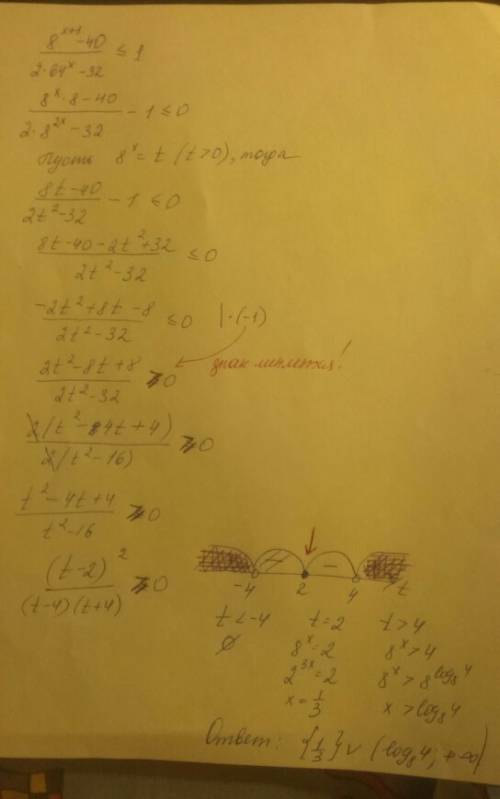 8^(x+1) - 40 / 2·64^x - 32 ≤ 1
8^x·8 - 40 / 2·8^(2x) - 32 - 1 ≤ 0
Пусть 8^x = t (t > 0), тогда
8t - 40 / 2t^2 - 32 - 1 ≤ 0
8t - 40 - 2t^2 + 32 / 2t^2 - 32 ≤ 0
-2t^2 + 8t - 8 / 2t^2 - 32 ≤ 0 | · (-1)
2t^2 - 8t + 8 / 2t^2 - 32 ≥ 0 знак меняется!
2(t^2 - 4t + 4) / 2(t^2 - 16) ≥ 0
t^2 - 4t + 4 / t^2 - 16 ≥ 0
(t - 2)^2 / (t - 4)(t + 4) ≥ 0
- -
-4 2 4 t
t < -4 t = 2 t > 4
∅ 8^x = 2 8^x > 4
2^(3x) = 2 8^x > 8^(log_8 4)
x = 1/3 x > log_8 4
Ответ: {1/3} ∪ (log_8 4; +∞)